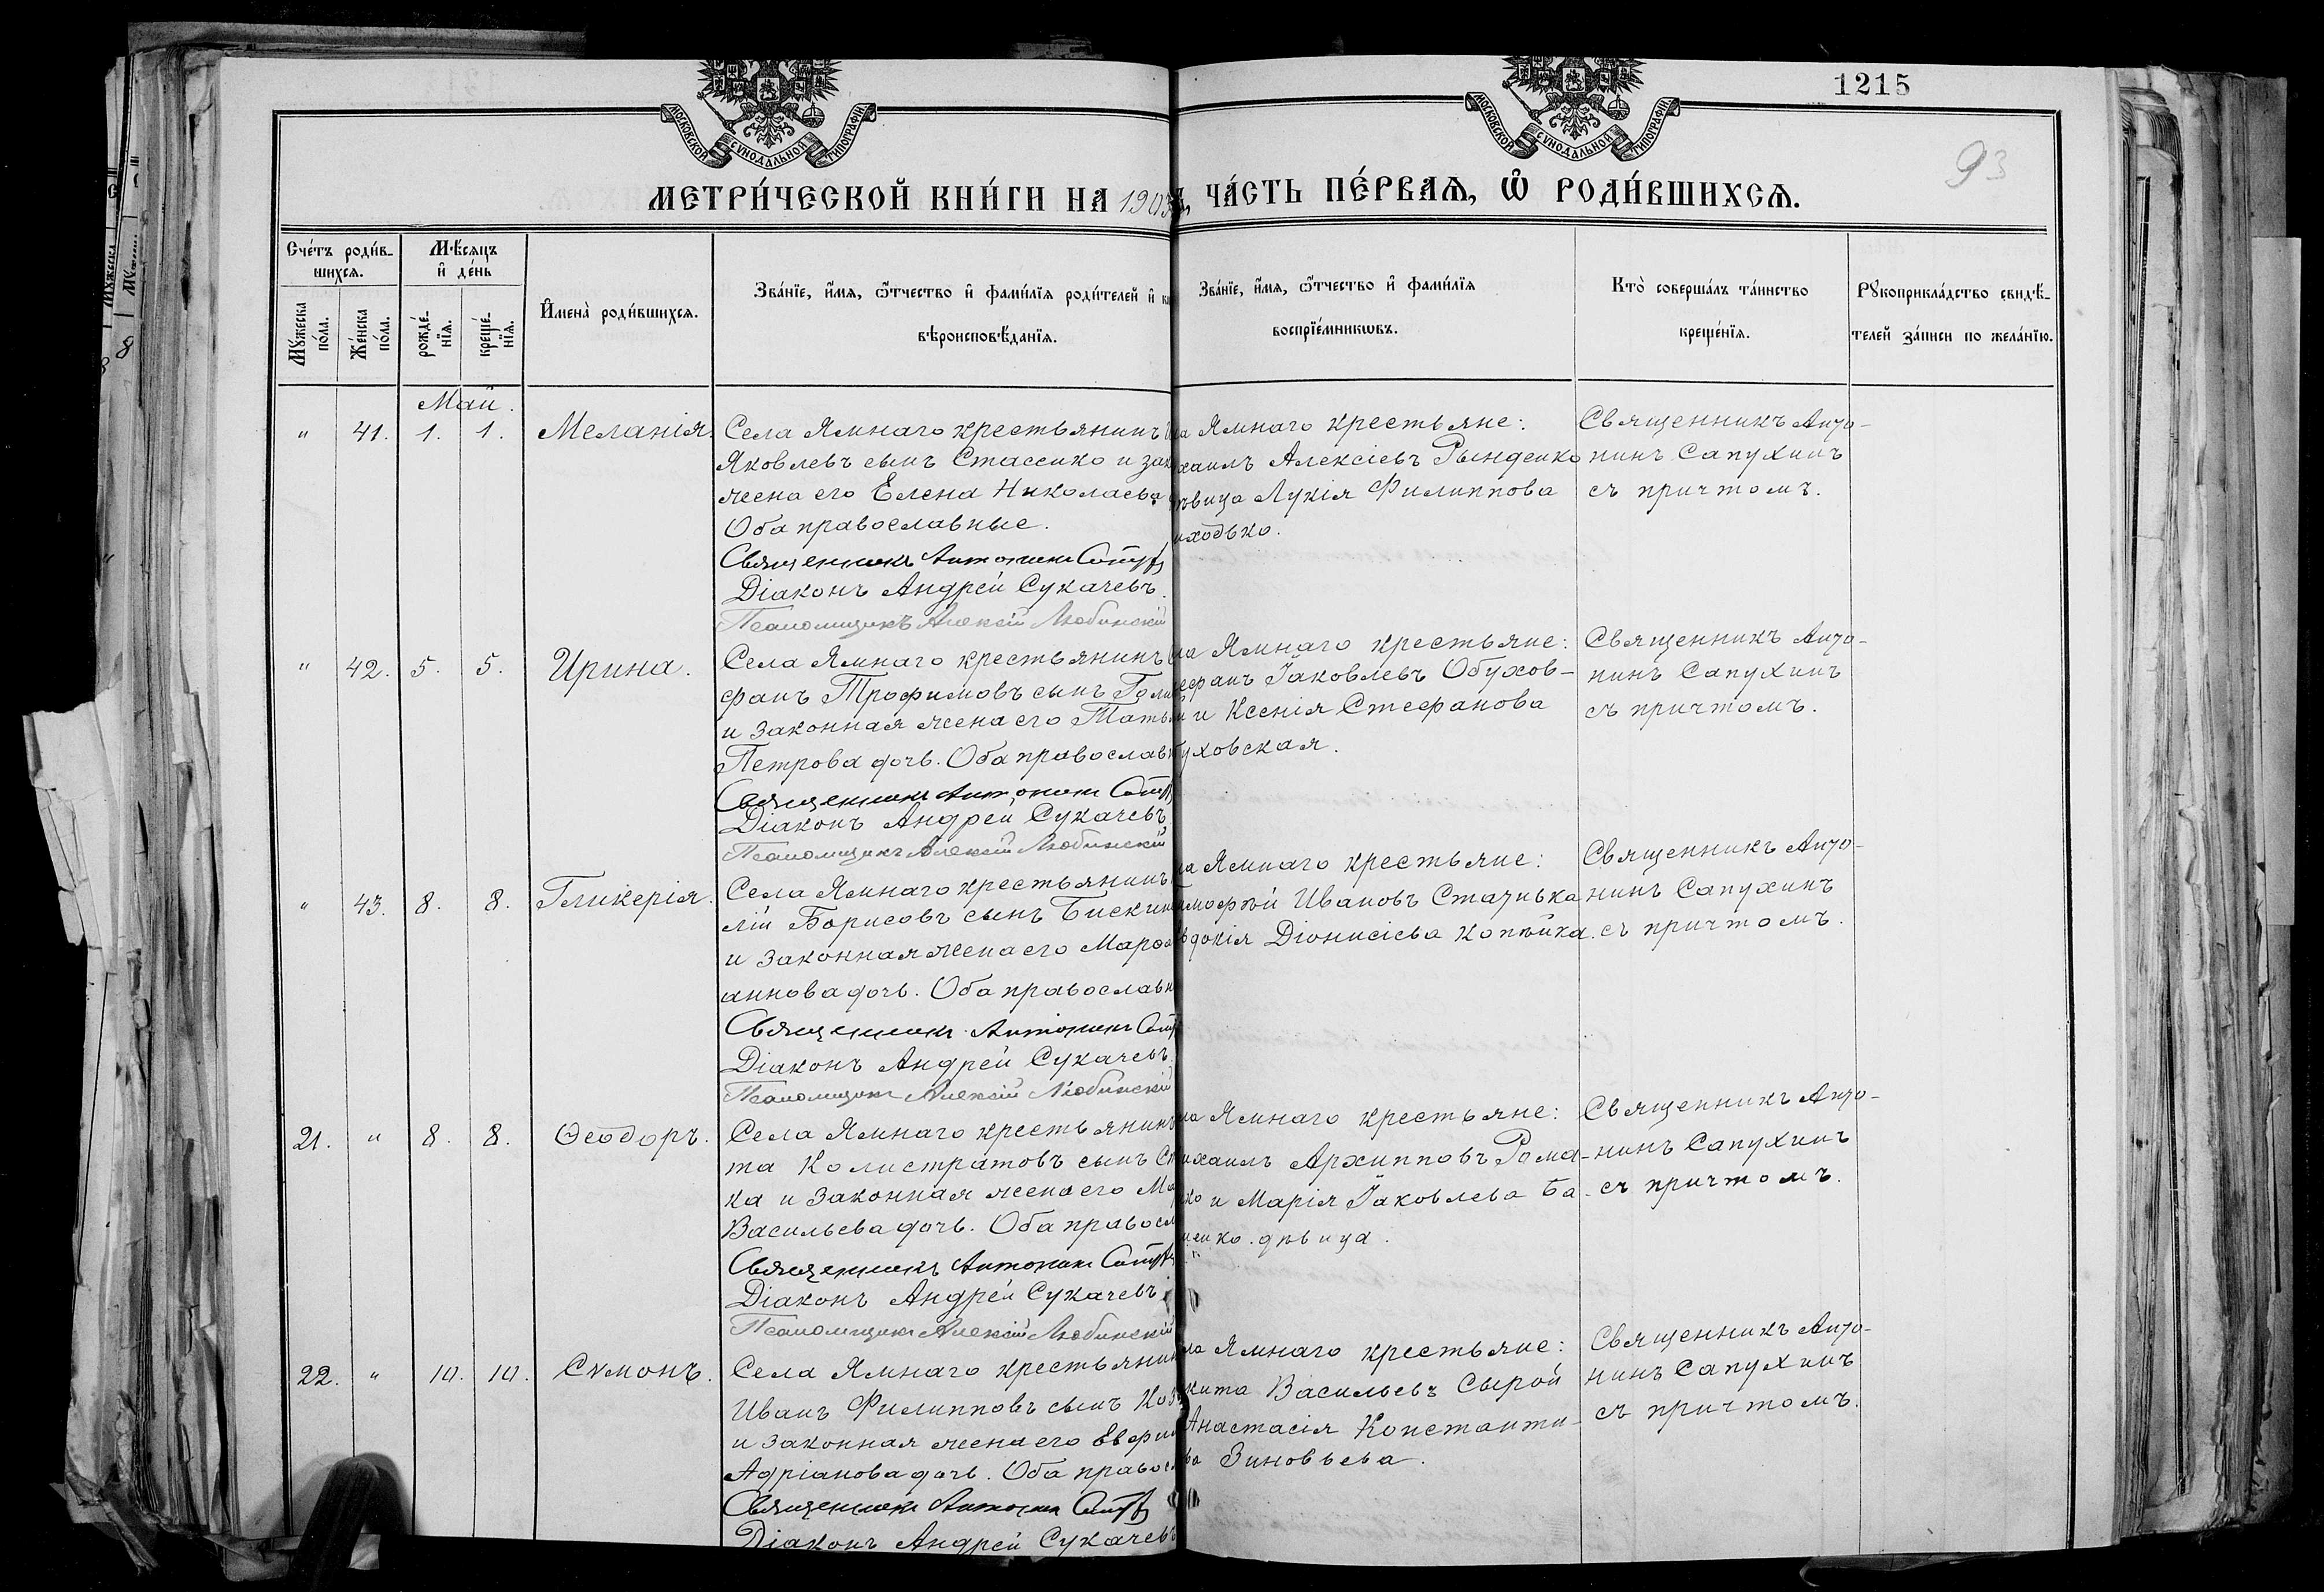 1215
93
МОСКОВСКОЙ СѴНОДАЛЬНОЙ ТИПОГРАФІИ
МОСКОВСКОЙ СѴНОДАЛЬНОЙ ТИПОГРАФІИ
МЕТРИ́ЧЕСКОЙ КНИ́ГИ НА 1903
ЧА́СТЬ ПЕ́РВАѦ, Ѡ҆ РОДИ́ВШИХСѦ.
Сче́тъ роди́в-
шихсѧ.
Мꙋ́жеска по́ла.
Же́нска по́ла.
Мѣ́сѧцъ
и҆ де́нь
рожде́-нїѧ.
креще́-нїѧ.
И҆мена̀ роди́вшихсѧ.
Зва́нїе, и҆́мѧ, ѻ҆́тчество и҆ фами́лїѧ роди́телей и҆
вѣроисповѣ́данїѧ.
Зва́нїе, и҆́мѧ, ѻ҆́тчество и҆ фами́лїѧ
воспрїе́мникѡвъ.
Кто̀ соверша́лъ та́инство
креще́нїѧ.
Рꙋкоприкла́дство свидѣ́-
телей за́писи по жела́нїю.
Май.
" 41. 1. 1. Меланія.
Села Ямнаго крестьянинъ
Яковлевъ сынъ Стасенко и зак
жена его Елена Николаева
Оба православные.
Священникъ Антонинъ
Діаконъ Андрей Сукачевъ.
Псаломщикъ Алексій Любинскій
ла Ямнаго крестьяне:
хаилъ Алексіевъ Рынденко
ѣвица Лукія Филиппова
иходько.
Священникъ Анто-
нинъ Сапухинъ
съ причтомъ.
" 42. 5. 5. Ирина.
Села Ямнаго крестьянинъ
фанъ Трофимовъ сынъ
и законная жена его Тать
Петрова дочь. Оба православ
Священникъ Антонинъ
Діаконъ Андрей Сукачевъ
Псаломщикъ Алексій Любинскій
ла Ямнаго крестьяне:
ефанъ Іаковлевъ Обухов-
й и Ксенія Стефанова
уховская.
Священникъ Анто-
нинъ Сапухинъ
съ причтомъ.
" 43. 8. 8. Гликерія.
Села Ямнаго крестьянинъ
лій Борисовъ сынъ Бискин
и законная жена его Марѳа
аннова дочь. Оба православн
Священникъ Антонинъ
Діаконъ Андрей Сукачевъ
Псаломщикъ Алексій Любинскій
ла Ямнаго крестьяне:
имофѣй Ивановъ Стачивка
вдокія Діонисіева Копѣйка.
Священникъ Анто-
нинъ Сапухинъ
съ причтомъ.
21. " 8. 8. Ѳеодоръ.
Села Ямнаго крестьянинъ
та Колистратовъ сынъ Ст
ка и законная жена его Ма
Васильева дочь. Оба правосл
Священникъ Антонинъ
Діаконъ Андрей Сукачевъ
Псаломщикъ Алексій Любинскій
ла Ямнаго крестьяне:
ихаилъ Архипповъ Рома-
ко и Марія Іаковлева Ба-
енко. дѣвица.
Священникъ Анто-
нинъ Сапухинъ
съ причтомъ.
22. " 10. 10. Сѵмонъ.
Села Ямнаго крестьянин
Иванъ Филипповъ сынъ Коз
и законная жена его Евфим
Адріанова дочь. Оба правосл
Священникъ Антонинъ
Діаконъ Андрей Сукачевъ
ла Ямнаго крестьяне:
кита Васильевъ Сырой
Анастасія Константи-
ва Зиновьева.
Священникъ Анто-
нинъ Сапухинъ
съ причтомъ.